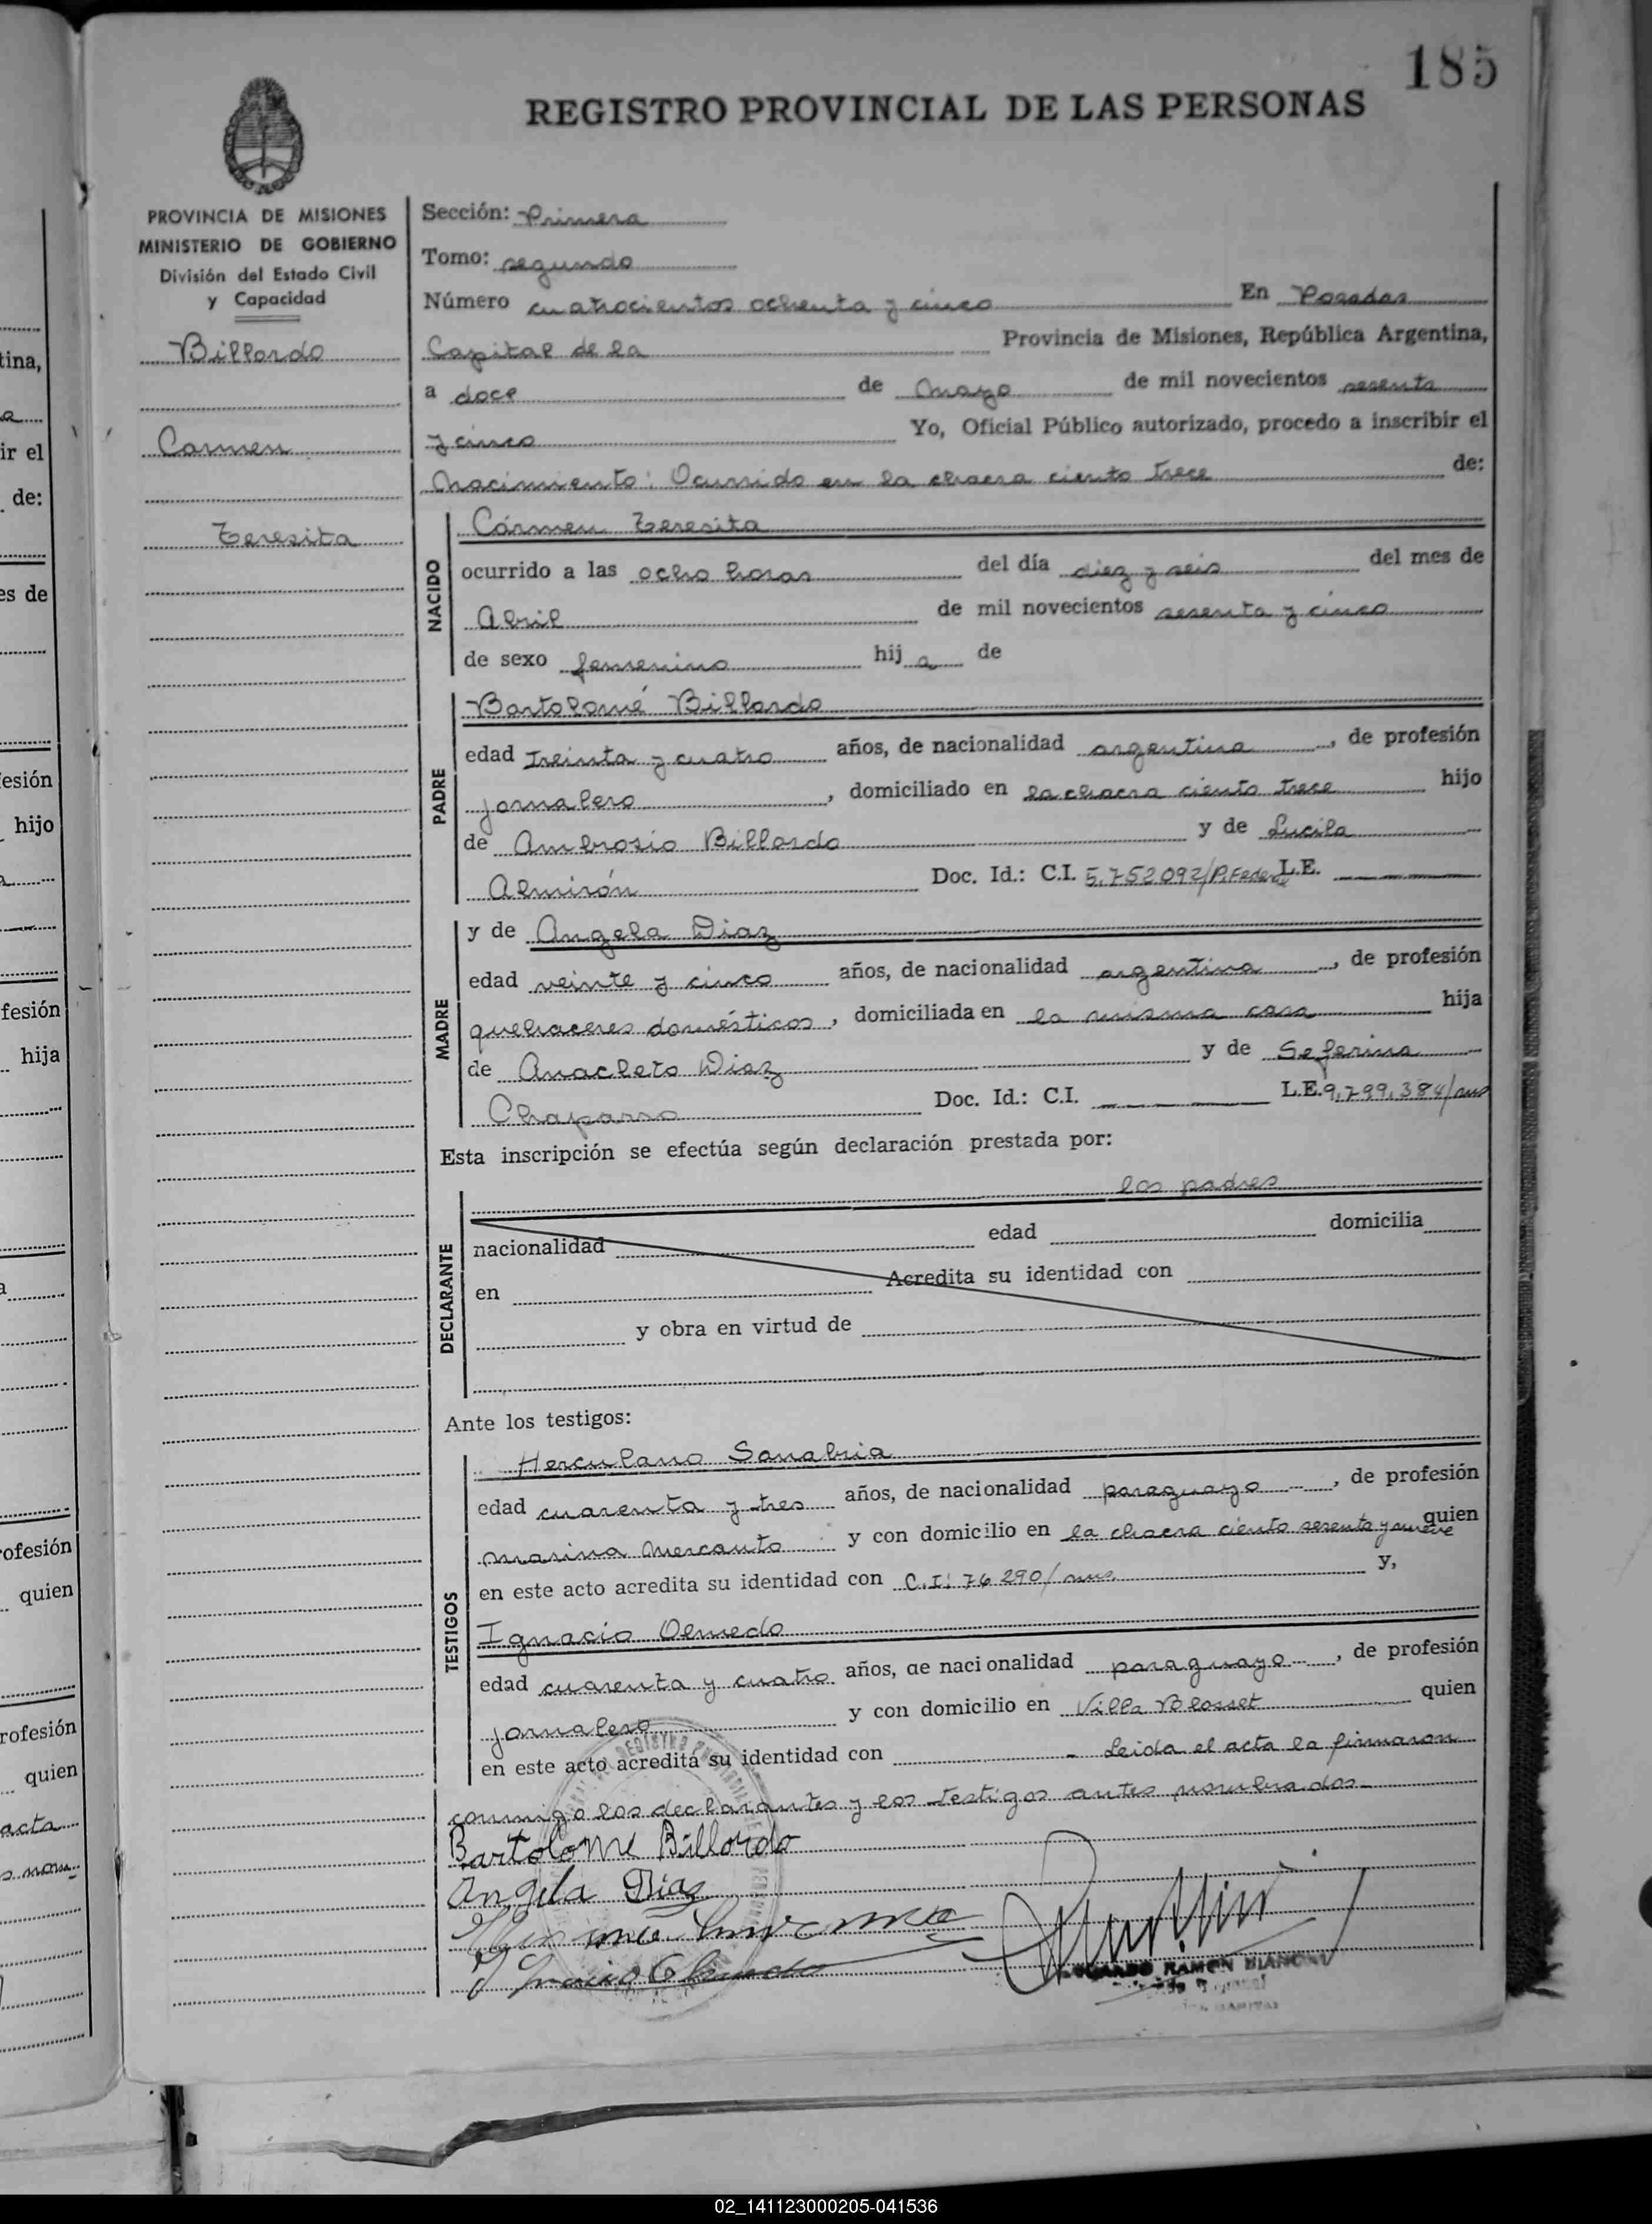 185
REGISTRO PROVINCIAL DE LAS PERSONAS
PROVINCIA DE MISIONES
MINISTERIO DE GOBIERNO
División del Estado Civil
y Capacidad
Billordo
Carmen
Teresita
Sección: Primera
Tomo: segundo
Número cuatrocientos ochenta y cinco En Posadas
Capital de la Provincia de Misiones, República Argentina,
a doce de mayo de mil novecientos sesenta
y cinco Yo, Oficial Público autorizado, procedo a inscribir el
nacimiento: Ocurrido en la chacra ciento trece de:
NACIDO
Cármen Teresita
ocurrido a las ocho horas del día diez y seis del mes de
Abril de mil novecientos sesenta y cinco
de sexo femenino hij a de
PADRE
Bartolomé Billordo
edad treinta y cuatro años, de nacionalidad argentina, de profesión
jornalero, domiciliado en la chacra ciento trece hijo
de Ambrosio Billordo y de Lucila
Almirón Doc. Id.: C.I. 5.752.092/P.Federal L.E.
MADRE
y de Angela Diaz
edad veinte y cinco años, de nacionalidad argentina, de profesión
quehaceres domésticos, domiciliada en la misma casa hija
de Anacleto Diaz y de Seferina
Chaparro Doc. Id.: C.I. L.E. 9.799.384/mns
Esta inscripción se efectúa según declaración prestada por:
los padres
DECLARANTE
nacionalidad edad domicilia
en Acredita su identidad con
y obra en virtud de
Ante los testigos:
TESTIGOS
Herculano Sanabria
edad cuarenta y tres años, de nacionalidad paraguayo, de profesión
marina mercante y con domicilio en la chacra ciento sesenta y nueve quien
en este acto acredita su identidad con C.I: 76.290/mns y,
Ignacio Olmedo
edad cuarenta y cuatro años, de nacionalidad paraguayo, de profesión
jornalero y con domicilio en Villa Blosset quien
en este acto acredita su identidad con - Leida el acta la firmaron
conmigo los declarantes y los testigos antes nombrados-
Bartolome Billordo
Angela Diaz
Ignacio Olmedo
RAMON BIANCHI
tina,
ir el
de:
es de
fesión
hijo
fesión
hija
rofesión
quien
rofesión
quien
acta
02_141123000205-041536